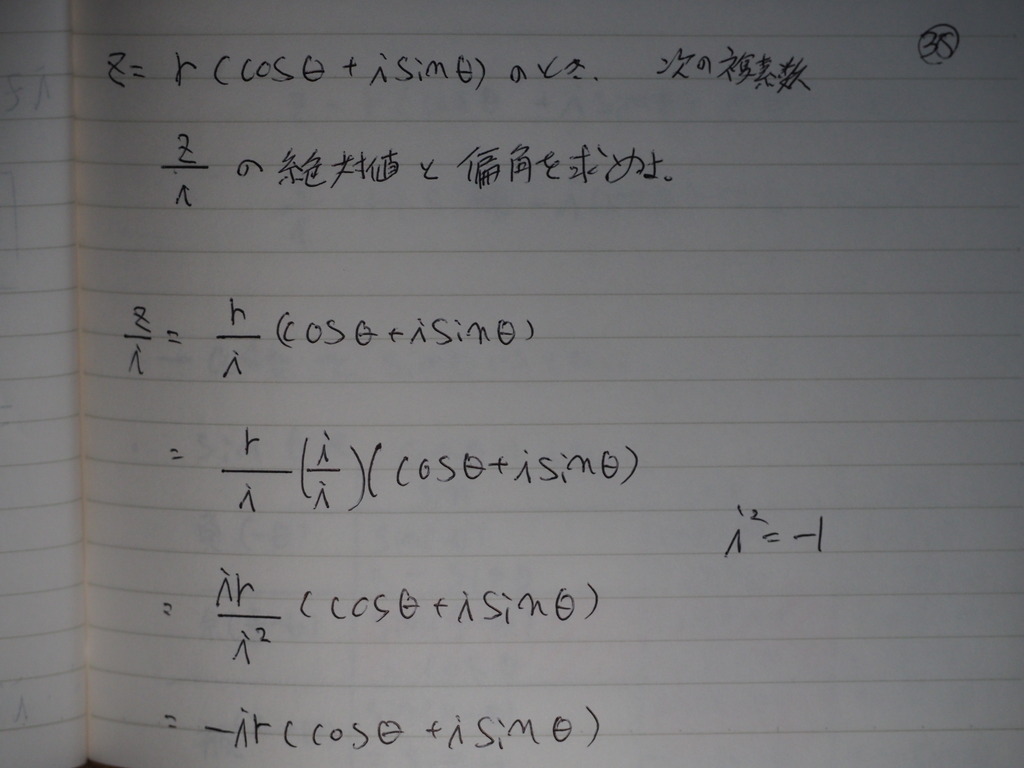 ㉟
z = r (cosθ + i sinθ) のとき. 次の複素数
z/i の絶対値と偏角を求めよ。
z/i = r/i (cosθ + i sinθ)
= r/i (i/i) (cosθ + i sinθ)
i² = -1
= ir/i² (cosθ + i sinθ)
= -ir (cosθ + i sinθ)